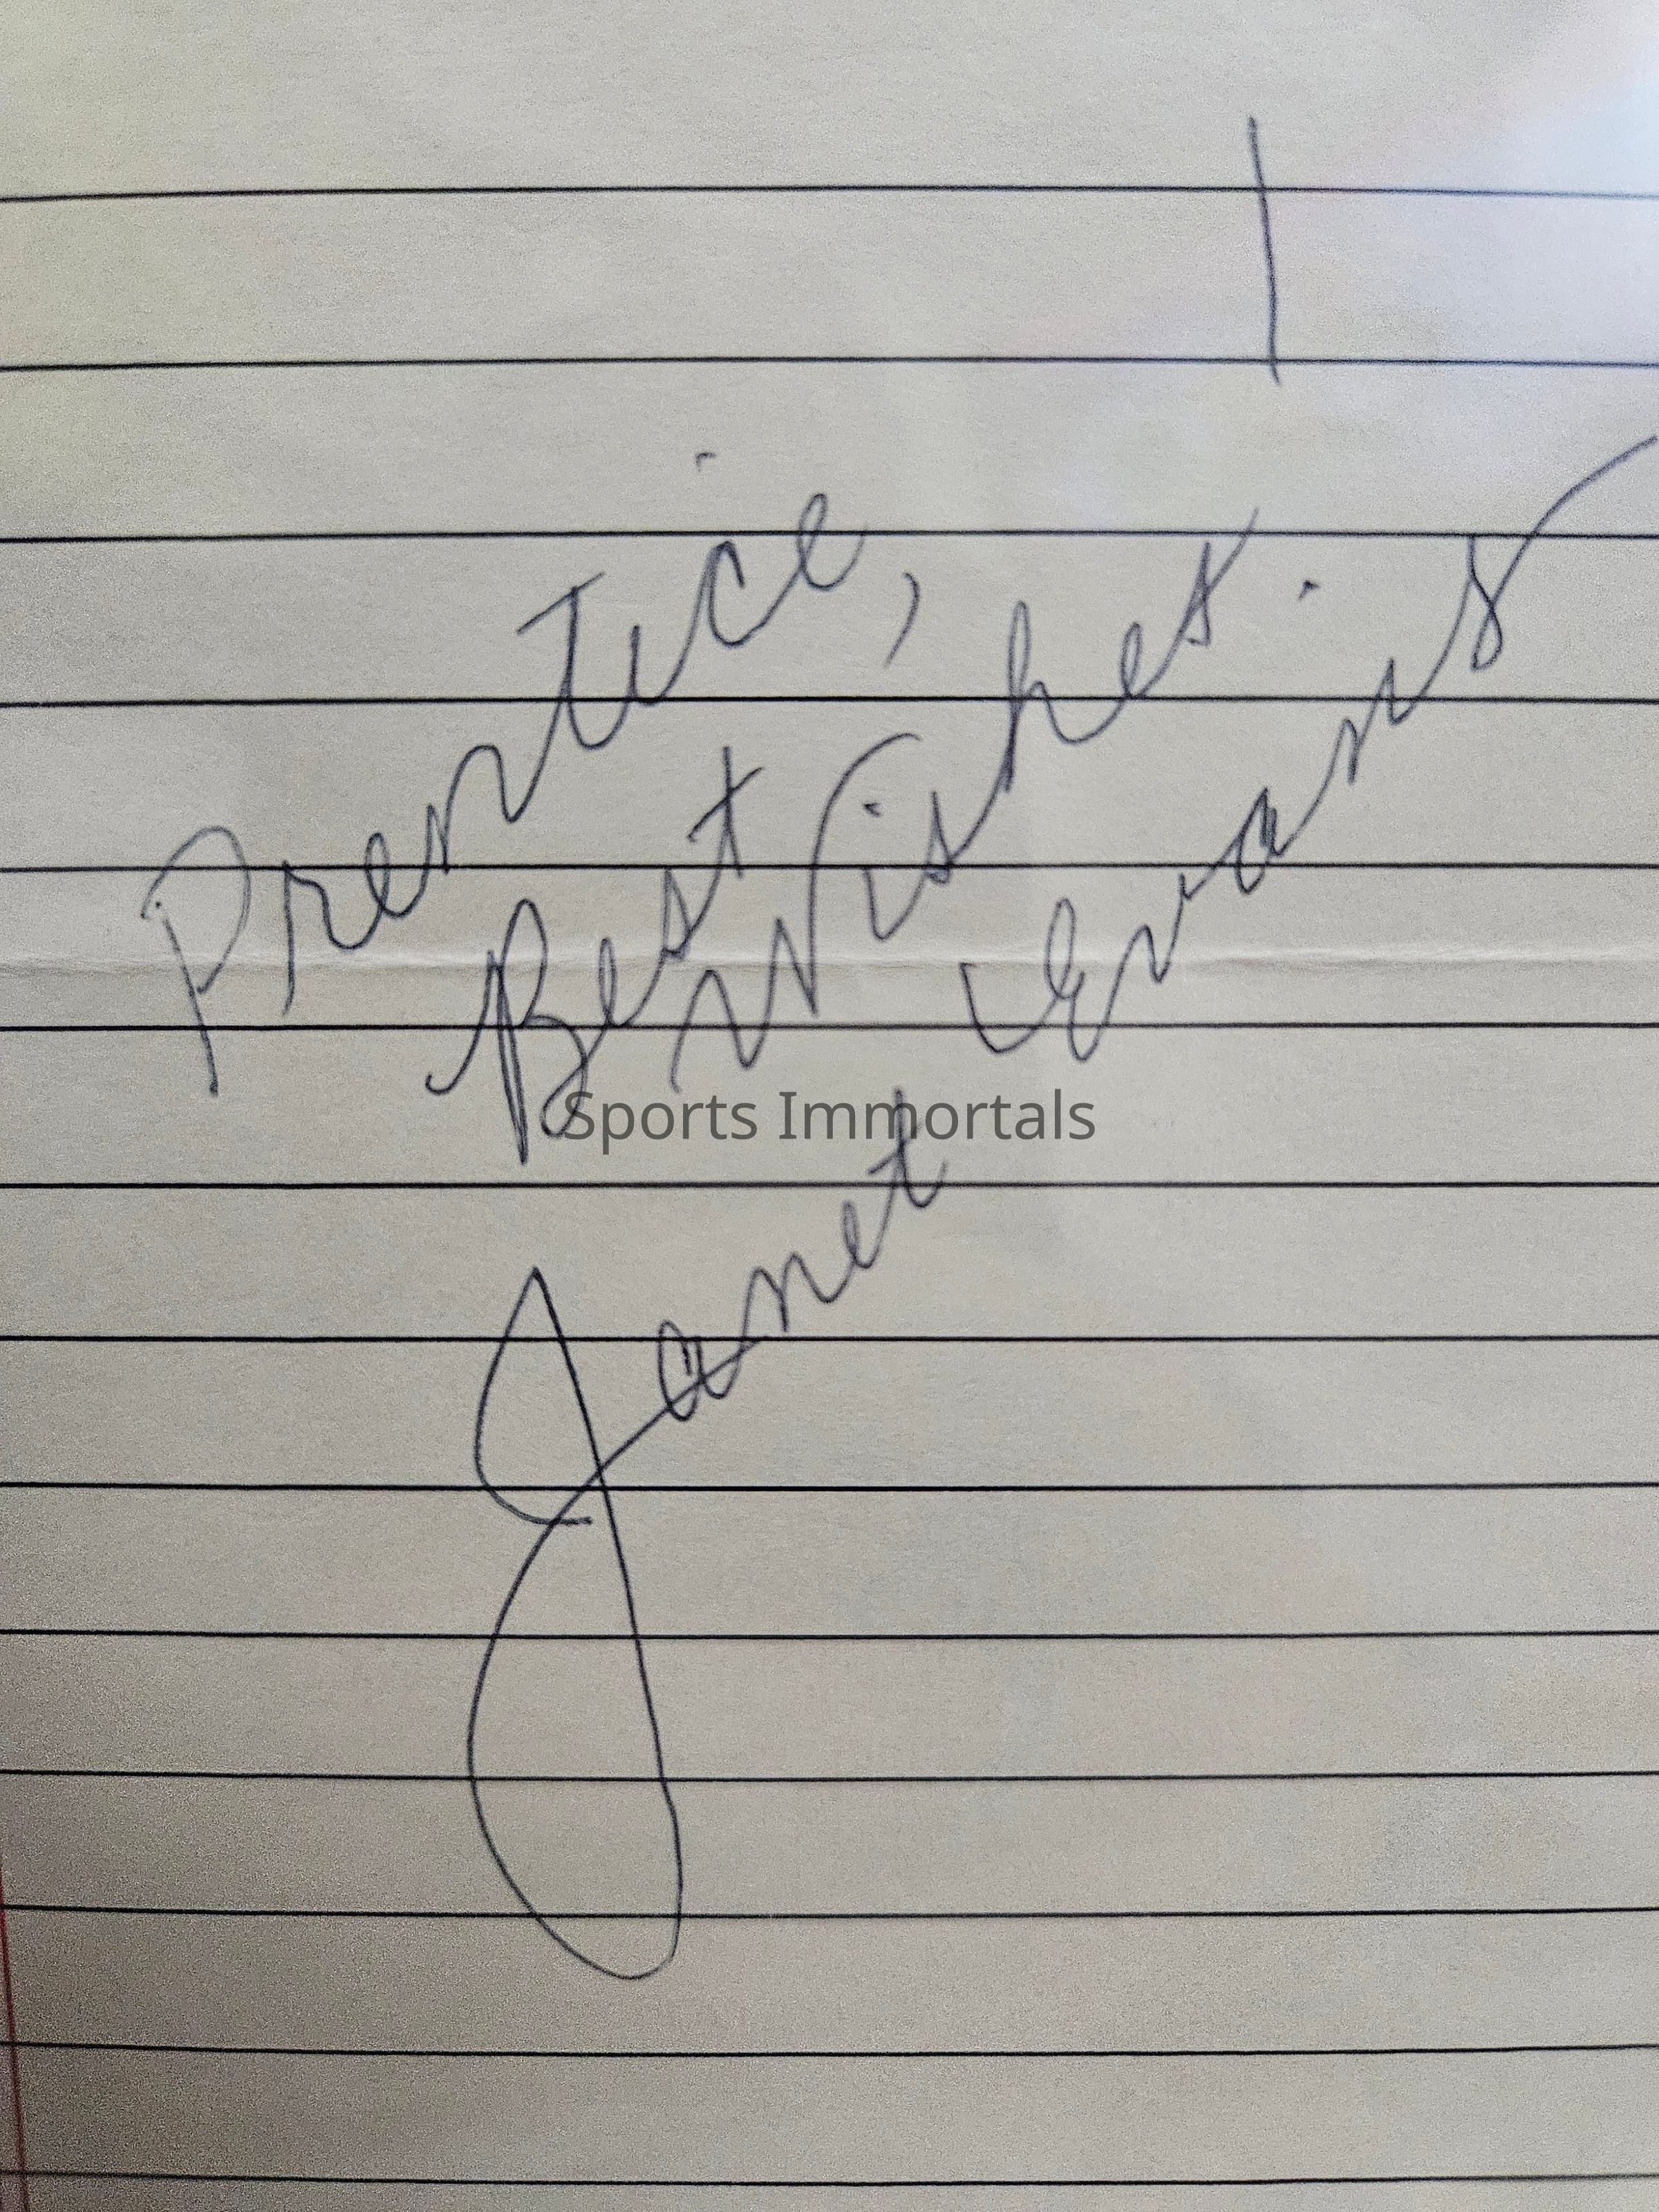 Prentice,
Best Wishes!
Janet Evans
Sports Immortals